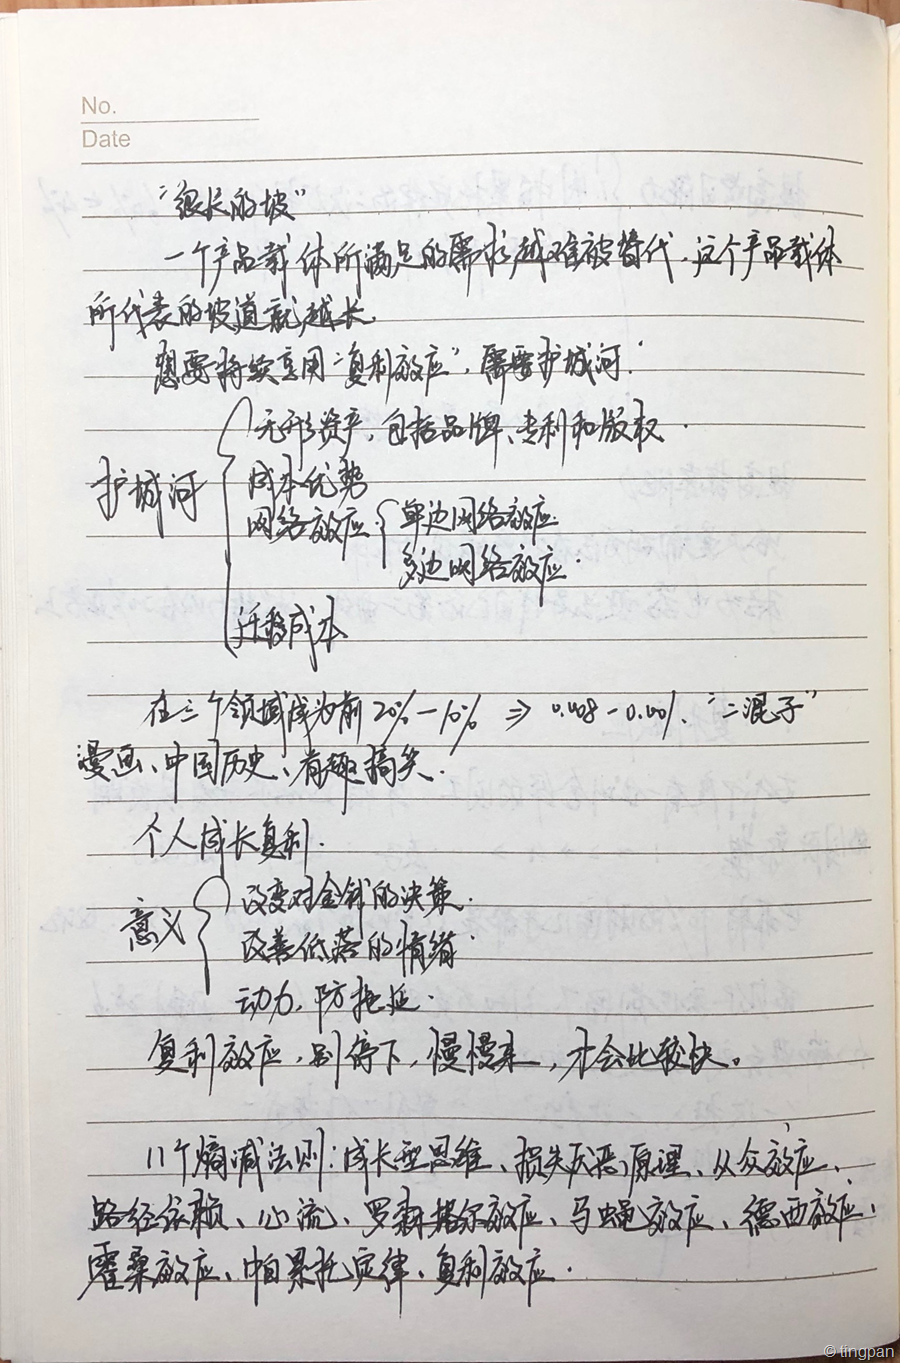 No.
Date
“很长的坡”
一个产品载体所满足的需求越难被替代,这个产品载体
所代表的坡道就越长.
想要持续享用“复利效应”,需要护城河:
无形资产,包括品牌、专利和版权.
护城河
成本优势
网络效应:
单边网络效应
多边网络效应.
迁移成本
在三个领域成为前20%-10% ⇒ 0.008-0.001. “二混子”
漫画、中国历史、有趣搞笑.
个人成长复利.
意义
改变对金钱的决策.
改善低落的情绪.
动力,防拖延.
复利效应,别停下,慢慢来,才会比较快。
11个熵减法则:成长型思维、损失厌恶原理、从众效应、
路径依赖、心流、罗森塔尔效应、马蝇效应、德西效应、
霍桑效应、帕累托定律、复利效应.
© tingpan